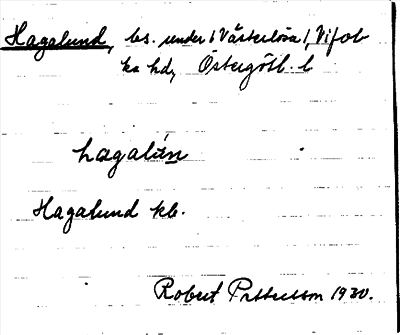 Hagalund, bs. under 1 Västerlösa 1, Vifol
ka hd, Östergötl. l
hagalún
Hagalund kb.
Robert Pettersson 1930.